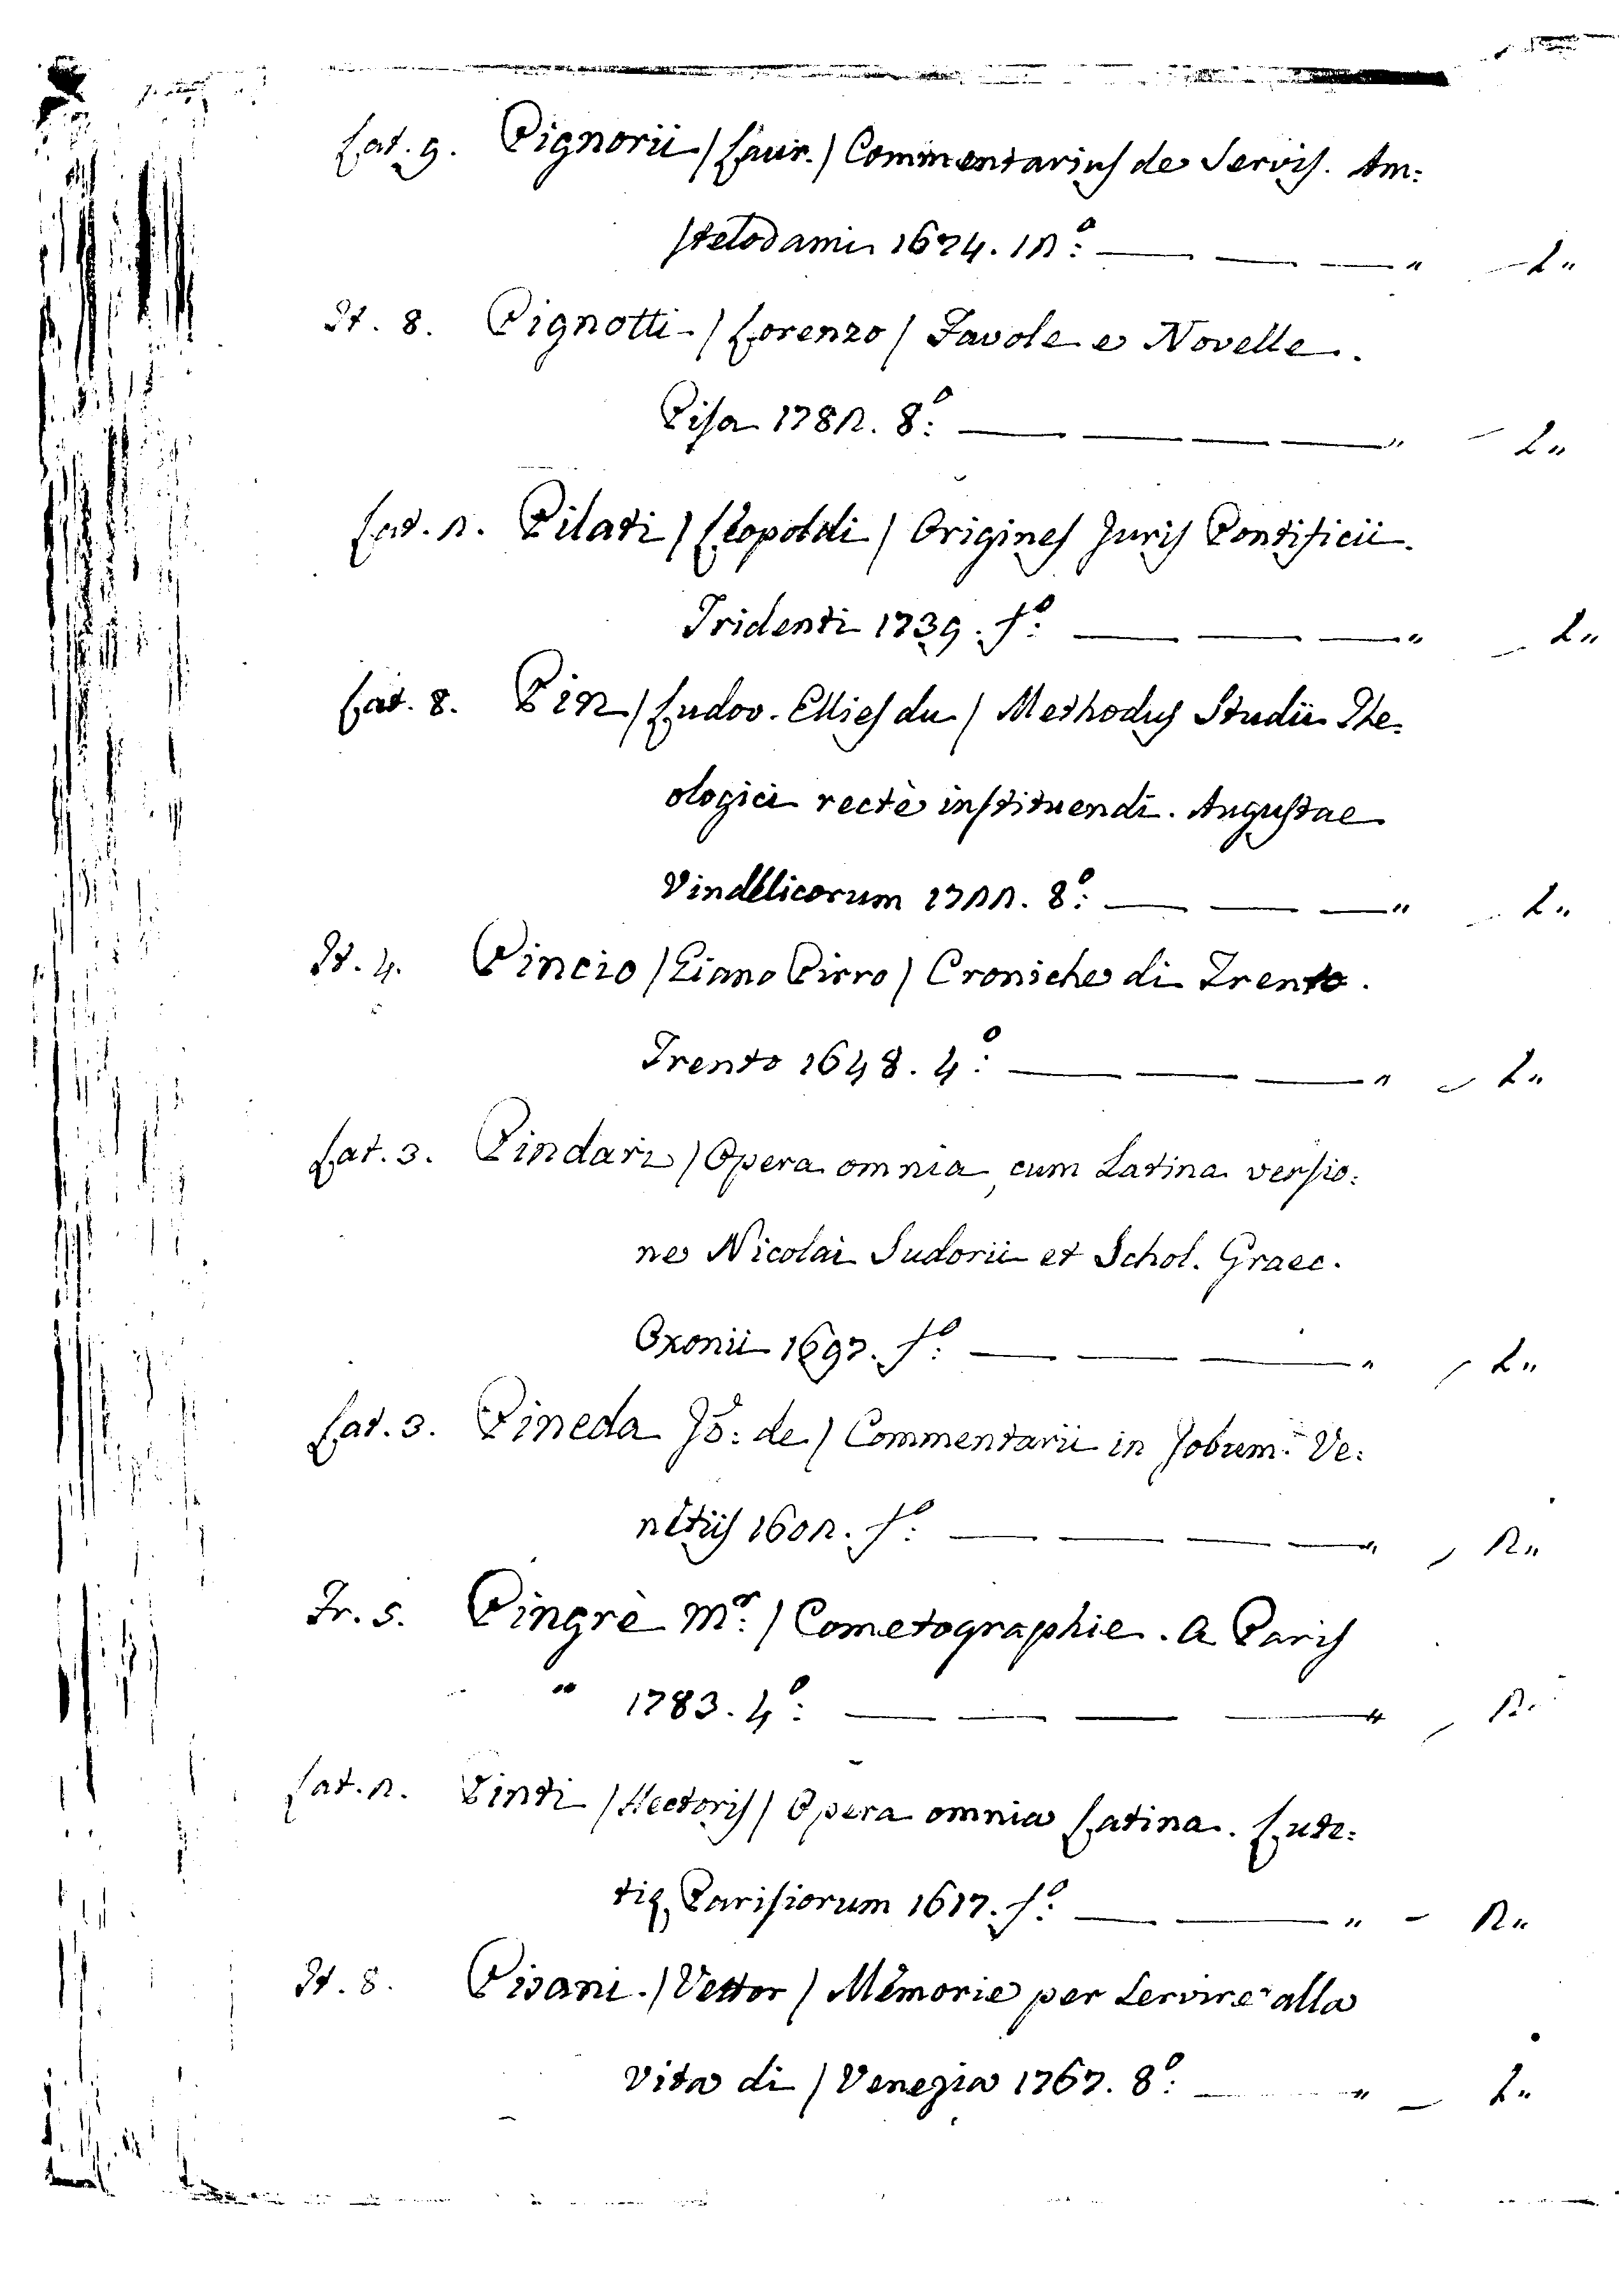 Lat. 9. Pignorii / Laur. / Commentarius de Servis. Am:
stelodami 1674. 12º: — — — " 1"
It. 8. Pignotti / Lorenzo / Favole e Novelle.
Pisa 1782. 8º: — — — — " 1"
Lat. 2. Pilati / Leopoldi / Origines Juris Pontificii.
Tridenti 1739. fº: — — — " 1"
Lat. 8. Pin / Ludov. Ellies du / Methodus Studii The:
ologici rectè instituendi. Augustae
Vindelicorum 1722. 8º: — — — " 1"
It. 4. Pincio / Giano Pirro / Croniche di Trento.
Trento 1648. 4º: — — — " 1"
Lat. 3. Pindari / Opera omnia, cum Latina versio:
ne Nicolai Sudorii et Schol. Graec.
Oxonii 1697. fº: — — — " 1"
Lat. 3. Pineda Jō: de / Commentarii in Jobum. Ve:
netiis 1602. fº: — — — — " 2"
Fr. 5. Pingrè Mr: / Cometographie. A Paris
" 1783. 4º: — — — — " 2"
Lat. 2. Pinti / Hectoris / Opera omnia Latina. Lute:
tię Parisiorum 1617. fº: — — " 2"
It. 8. Pisani / Vettor / Memorie per servire alla
Vita di / Venezia 1767. 8º: — " 1"